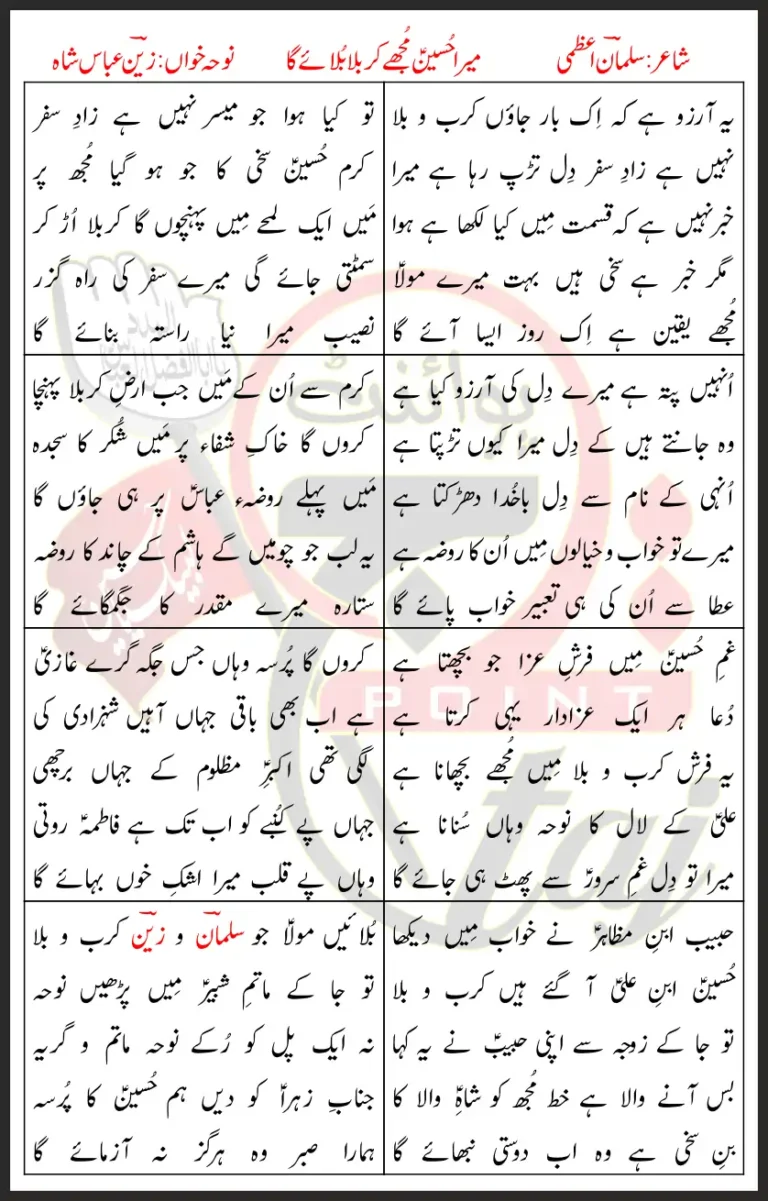 شاعر: سلمانؔ اعظمی
میرا حُسینؑ مُجھے کربلا بُلائے گا
نوحہ خواں: زینؔ عباس شاہ
یہ آرزو ہے کہ اِک بار جاؤں کرب و بلا
نہیں ہے زادِ سفر دِل تڑپ رہا ہے میرا
خبر نہیں ہے کہ قسمت مِیں کیا لکھا ہے ہوا
مگر خبر ہے سخی ہیں بہت میرے مولاؑ
مُجھے یقین ہے اِک روز ایسا آئے گا
تو کیا ہوا جو میسر نہیں ہے زادِ سفر
کرم حُسینؑ سخی کا جو ہو گیا مُجھ پر
مَیں ایک لمحے مِیں پہنچوں گا کربلا اُڑ کر
سمٹتی جائے گی میرے سفر کی راہ گزر
نصیب میرا نیا راستہ بنائے گا
اُنہیں پتہ ہے میرے دِل کی آرزو کیا ہے
وہ جانتے ہیں کے دِل میرا کیوں تڑپتا ہے
اُنہی کے نام سے دِل باخُدا دھڑکتا ہے
میرے تو خواب و خیالوں مِیں اُن کا روضہ ہے
عطا سے اُن کی ہی تعبیر خواب پائے گا
کرم سے اُن کے مَیں جب ارضِ کربلا پہنچا
کروں گا خاکِ شفاء پر مَیں شُکر کا سجدہ
مَیں پہلے روضہء عباسؑ پر ہی جاؤں گا
یہ لب جو چومیں گے ہاشم کے چاند کا روضہ
ستارہ میرے مقدر کا جگمگائے گا
غمِ حُسینؑ مِیں فرشِ عزا جو بچھتا ہے
دُعا ہر ایک عزادار یہی کرتا ہے
یہ فرش کرب و بلا مِیں مُجھے بچھانا ہے
علیؑ کے لال کا نوحہ وہاں سُنانا ہے
میرا تو دِل غمِ سرورؑ سے پھٹ ہی جائے گا
کروں گا پُرسہ وہاں جس جگہ گرے غازیؑ
ہے اب بھی باقی جہاں آہیں شہزادی کی
لگی تھی اکبرِؑ مظلوم کے جہاں برچھی
جہاں پے کُنبے کو اب تک ہے فاطمہؑ روتی
وہاں پے قلب میرا اشکِ خوں بہائے گا
حبیب ابنِ مظاہرؑ نے خواب مِیں دیکھا
حُسینؑ ابنِ علیؑ آ گئے ہیں کرب و بلا
تو جا کے زوجہ سے اپنی حبیبؑ نے یہ کہا
بس آنے والا ہے خط مُجھ کو شاہِؑ والا کا
بنِ سخی ہے وہ اب دوستی نبھائے گا
بُلائیں مولاؑ جو سلمانؔ و زینؔ کرب و بلا
تو جا کے ماتمِ شبیرؑ مِیں پڑھیں نوحہ
نہ ایک پل کو رُکے نوحہ ماتم و گریہ
جنابِ زہراؑ کو دیں ہم حُسینؑ کا پُرسہ
ہمارا صبر وہ ہرگز نہ آزمائے گا
پوائنٹ
تاج
POINT
taj